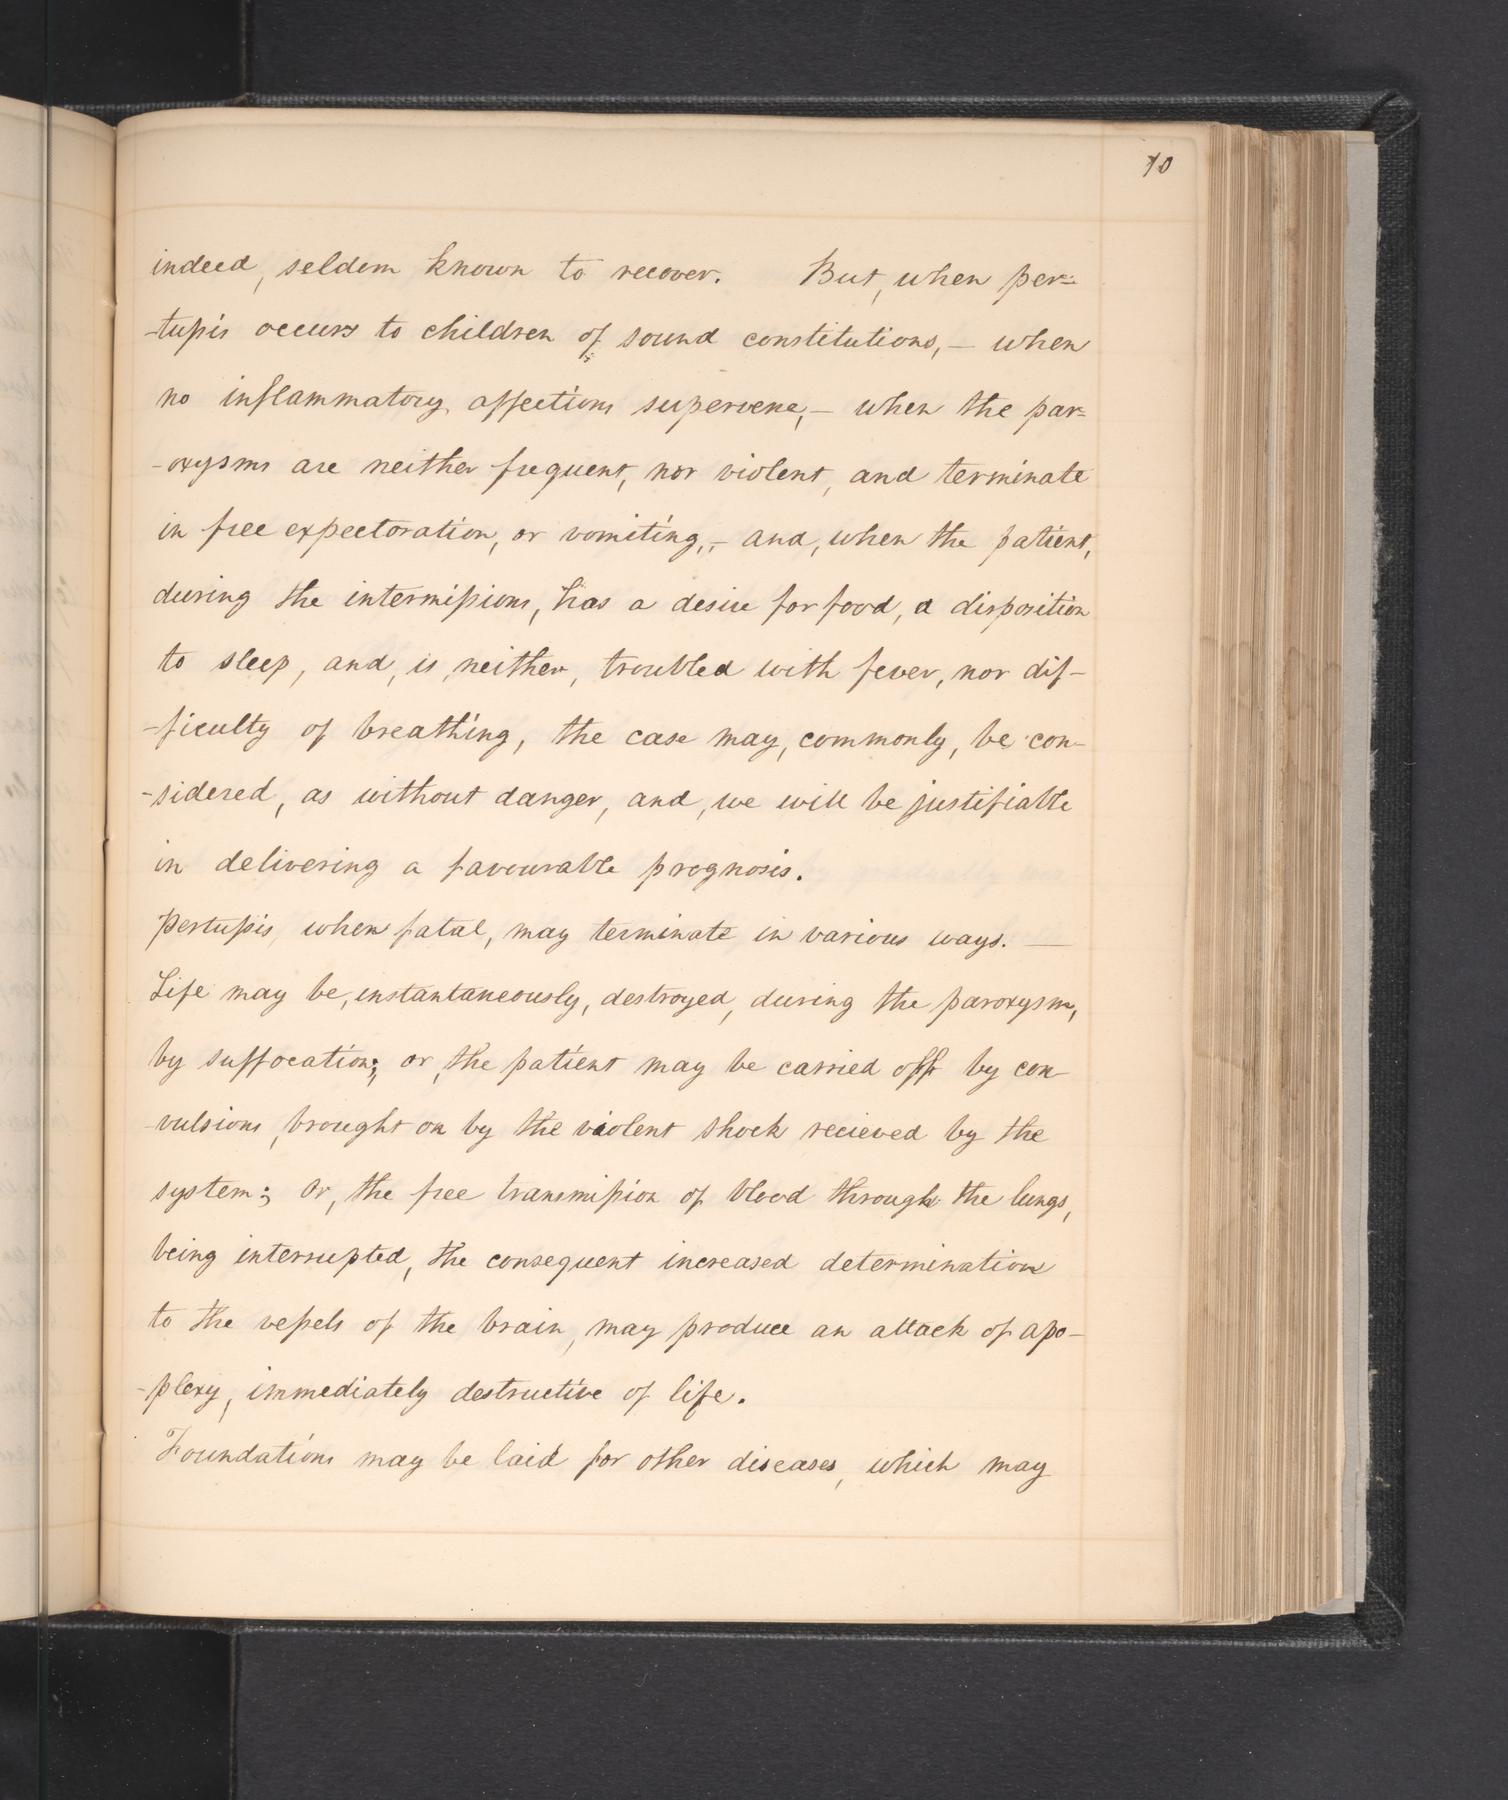 10
indeed, seldom known to recover. But, when per=
-tussis occurs to children of sound constitutions, – when
no inflammatory affections supervene, – when the par=
-oxysms are neither frequent, nor violent, and terminate
in free expectoration, or vomiting, – and, when the patient,
during the intermissions, has a desire for food, a disposition
to sleep, and, is, neither, troubled with fever, nor dif-
-ficulty of breathing, the case may, commonly, be con-
-sidered, as without danger, and, we will be justifiable
in delivering a favourable prognosis.
Pertussis, when fatal, may terminate in various ways. —
Life may be, instantaneously, destroyed, during the paroxysm,
by suffocation; or, the patient may be carried off by con-
-vulsions, brought on by the violent shock recieved by the
system; Or, the free transmission of blood through the lungs,
being interrupted, the consequent increased determination
to the vessels of the brain, may produce an attack of apo-
-plexy, immediately destructive of life.
Foundations may be laid for other diseases, which may